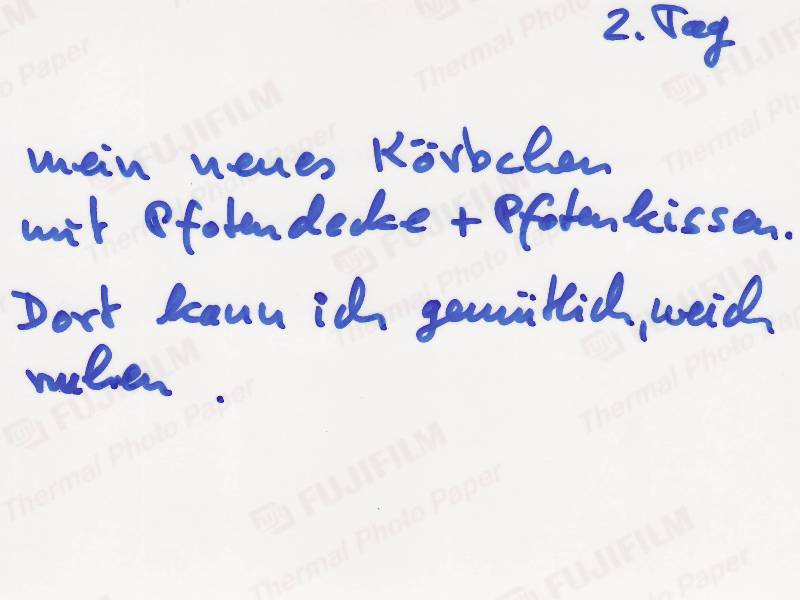 2. Tag
mein neues Körbchen
mit Pfotendecke + Pfotenkissen.
Dort kann ich gemütlich, weich
ruhen.
FUJIFILM
Thermal Photo Paper